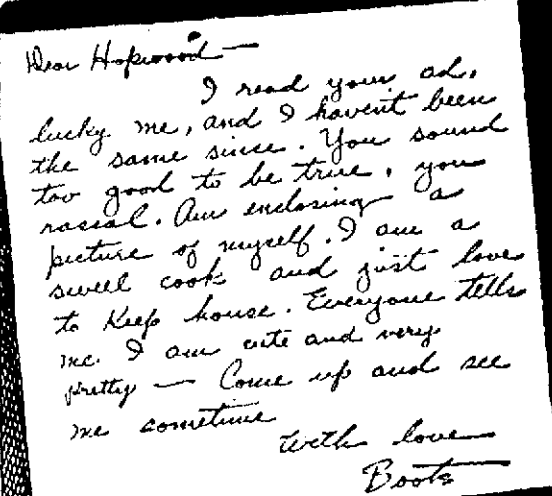 Dear Hopwood —
I read your ad,
lucky me, and I haven't been
the same since. You sound
too good to be true, you
rascal. Am enclosing a
picture of myself. I am a
swell cook and just love
to keep house. Everyone tells
me I am cute and very
pretty — Come up and see
me sometime
With love
Boots